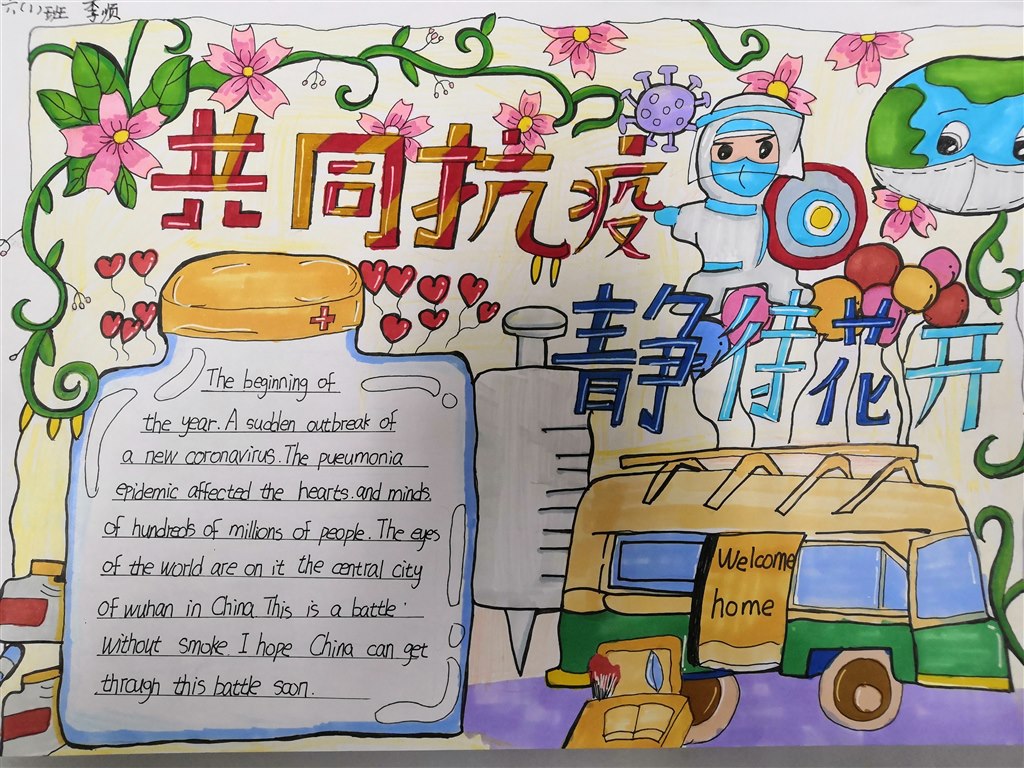 六(1)班 李顺
共同抗疫
静待花开
The beginning of
the year. A sudden outbreak of
a new coronavirus. The pueumonia
epidemic affected the hearts. and minds.
of hundreds of millions of people. The eyes
of the world are on it the central city
of wuhan in China. This is a battle
without smoke. I hope China can get
through this battle soon.
Welcome
home